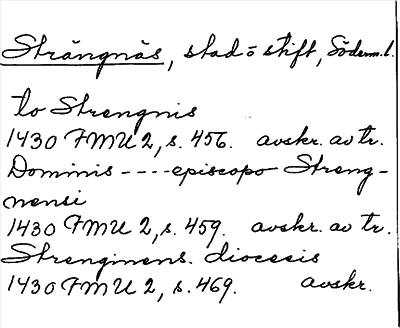 Strängnäs, stad o stift, Söderm.l.
to Strengnis
1430 FMU 2, s. 456. avskr. av tr.
Dominis ---- episcopo Streng-
nensi
1430 FMU 2, s. 459. avskr. av tr.
Strenginens. diocesis
1430 FMU 2, s. 469. avskr.